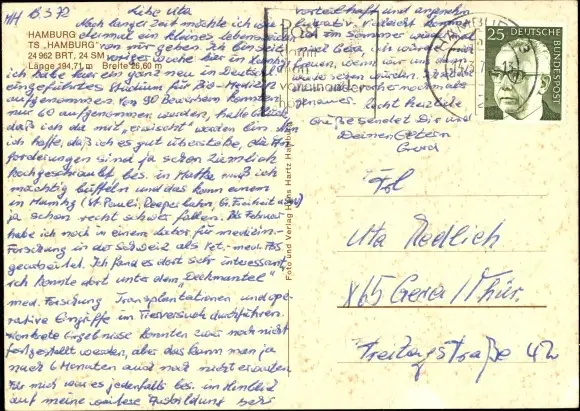 HH 13.3.72 Liebe Uta
Nach langer Zeit möchte ich wieder
einmal ein kleines Lebenszeichen
von mir geben. Ich bin seit
voriger Woche hier in Hamburg
HAMBURG
TS „HAMBURG“
24 962 BRT, 24 SM
Länge 194,71 m Breite 26,60 m
ich habe hier ein ganz neu in Deutschl.
eingeführtes Studium für Bio-Medizin
aufgenommen. Von 90 Bewerbern konnten
nur 60 aufgenommen werden, habe Glück,
daß ich da mit „erwischt“ worden bin. Ich
hoffe, daß ich es gut überstehe, die An-
forderungen sind ja schon ziemlich
hochgeschraubt, bes. in Mathe muß ich
mächtig büffeln und das kann einem
in Hambg (St. Pauli, Reeperbahn, Gr. Freiheit usw)
ja schon recht schwer fallen. Bis Februar
habe ich noch in einem Labor für medizin.
Forschung in der Schweiz als Vet.-med.
gearbeitet. Ich fand es dort sehr interessant,
ich konnte dort unter dem „Deckmantel“
med. Forschung Transplantationen und ope-
rative Eingriffe im Tierversuch durchführen.
Konkrete Ergebnisse konnten zwar noch nicht
festgestellt werden, aber das kann man ja
nach 6 Monaten auch noch nicht erwarten.
Für mich war es jedenfalls bes. im Hinblick
auf meine weitere Ausbildung sehr
vorteilhaft und angenehm
Vielleicht kommen
im Sommer
Gera, ich würde mich
freuen, wenn wir uns
würden.
nochmals
genaues.
Recht herzliche
Grüße sendet Dir und
Deinen Eltern
Gerd
Post
voneinander
25 DEUTSCHE
BUNDESPOST
Foto und Verlag Hans Hartz Hamburg
Frl
Uta Redlich
X65 Gera / Thür.
Freitagstraße 42